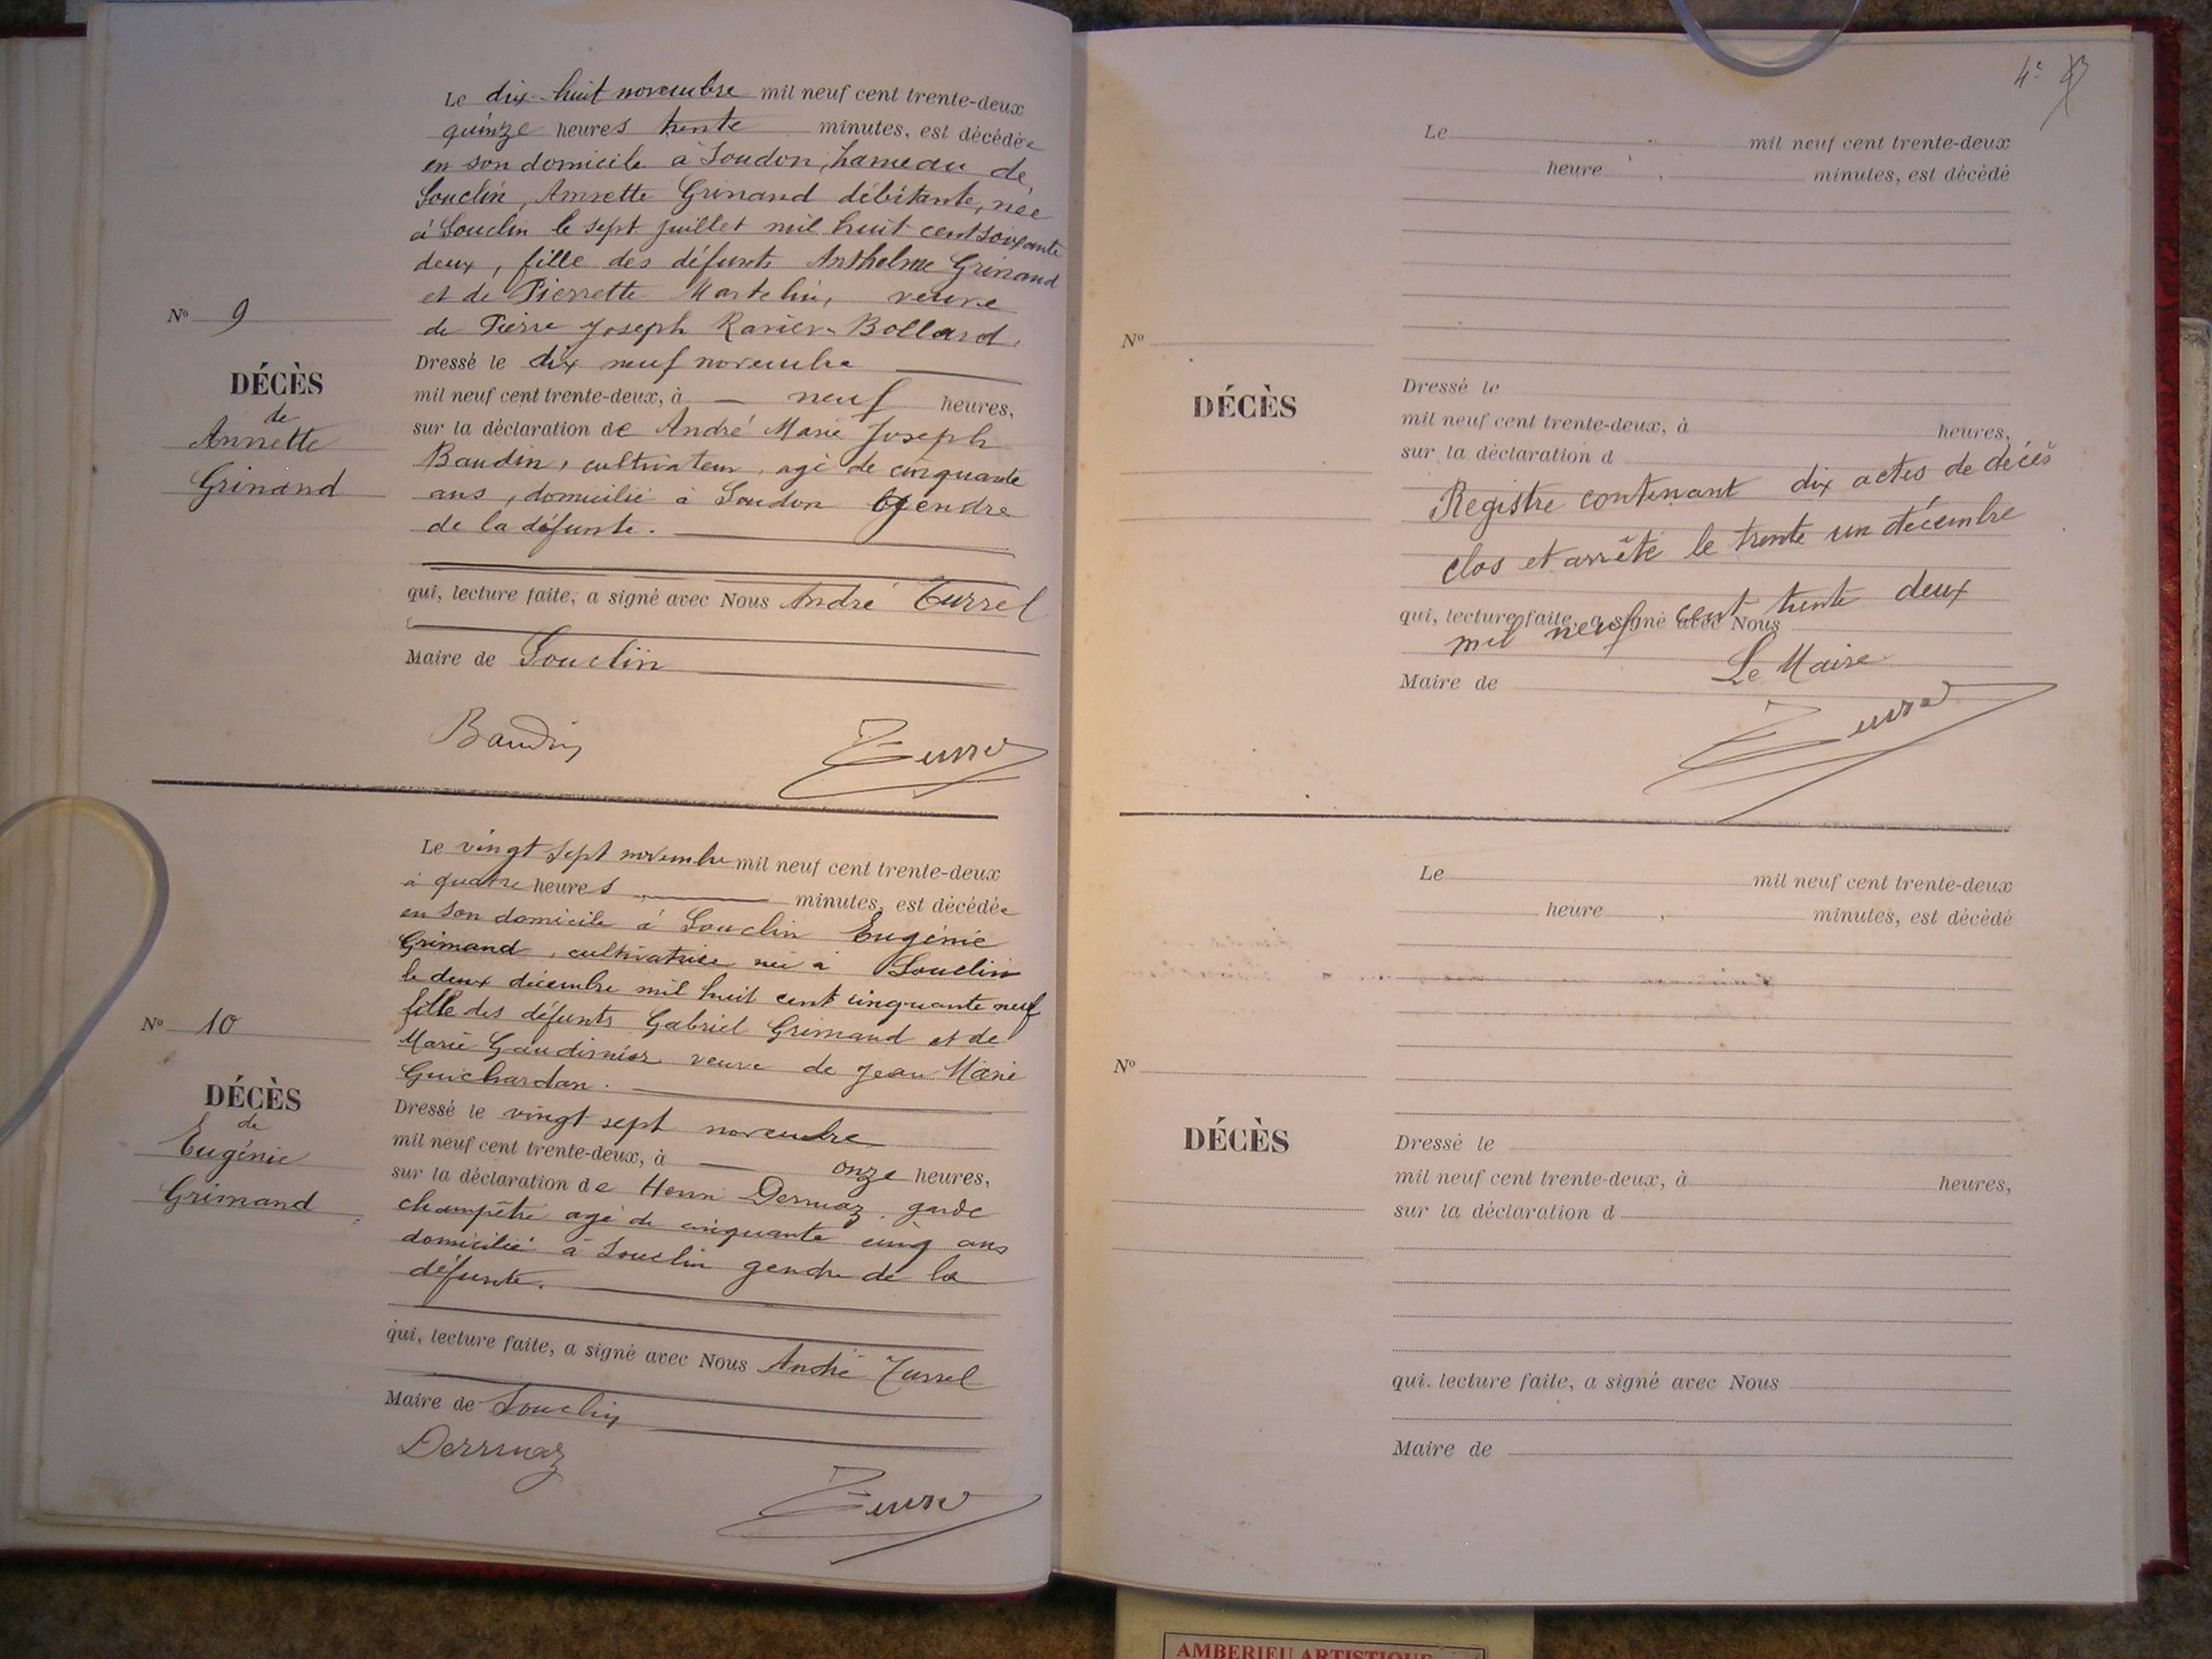 Le dix-huit novembre mil neuf cent trente-deux
quinze heures trente minutes, est décédée
en son domicile à Soudon, hameau de
Souclin, Annette Grinand débitante, née
à Souclin le sept juillet mil huit cent soixante
deux, fille des défunts Anthelme Grinand
et de Pierrette Martelin, veuve
de Pierre Joseph Ravier-Bollard,
Nº 9
DÉCÈS
de
Annette
Grinand
Dressé le dix neuf novembre
mil neuf cent trente-deux, à neuf heures,
sur la déclaration de André Marie Joseph
Baudin, cultivateur, agé de cinquante
ans, domicilié à Soudon gendre
de la défunte.
qui, lecture faite, a signé avec Nous André Turrel
Maire de Souclin
Baudin Turrel
Le vingt sept novembre mil neuf cent trente-deux
à quatre heures minutes, est décédée
en son domicile à Souclin Eugénie
Grimand, cultivatrice née à Souclin
le deux décembre mil huit cent cinquante neuf
fille des défunts Gabriel Grimand et de
Marie veuve de Jean Marie
Guichardan.
Nº 10
DÉCÈS
de
Eugénie
Grimand
Dressé le vingt sept novembre
mil neuf cent trente-deux, à onze heures,
sur la déclaration de Henri Dernaz garde
champêtre agé de cinquante cinq ans
domicilié à Souclin gendre de la
défunte.
qui, lecture faite, a signé avec Nous André Turrel
Maire de Souclin
Turrel
4e
Le mil neuf cent trente-deux
heure , minutes, est décédé
Nº
DÉCÈS
Dressé le
mil neuf cent trente-deux, à heures,
sur la déclaration d
Registre contenant dix actes de décès
clos et arrêté le trente un décembre
qui, lecture faite, a signé avec Nous
mil neuf cent trente deux
Le Maire
Maire de
Turrel
Le mil neuf cent trente-deux
heure , minutes, est décédé
Nº
DÉCÈS
Dressé le
mil neuf cent trente-deux, à heures,
sur la déclaration d
qui, lecture faite, a signé avec Nous
Maire de
AMBERIEU ARTISTIQUE